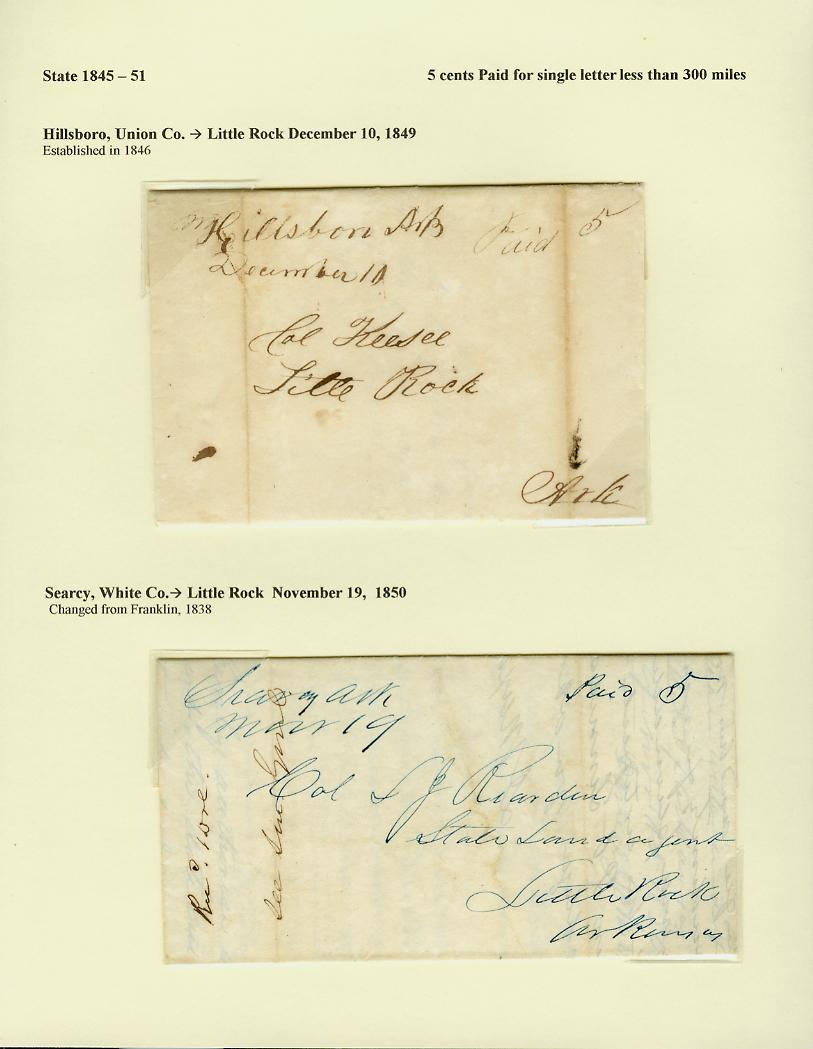 State 1845 – 51
5 cents Paid for single letter less than 300 miles
Hillsboro, Union Co. → Little Rock December 10, 1849
Established in 1846
Hillsboro Ark
Paid 5
December 10
Col Keesee
Little Rock
Ark
Searcy, White Co.→ Little Rock November 19, 1850
Changed from Franklin, 1838
Searcy Ark
Paid 5
Nov 19
Col S J Rearden
State Land agent
Little Rock
Arkansas